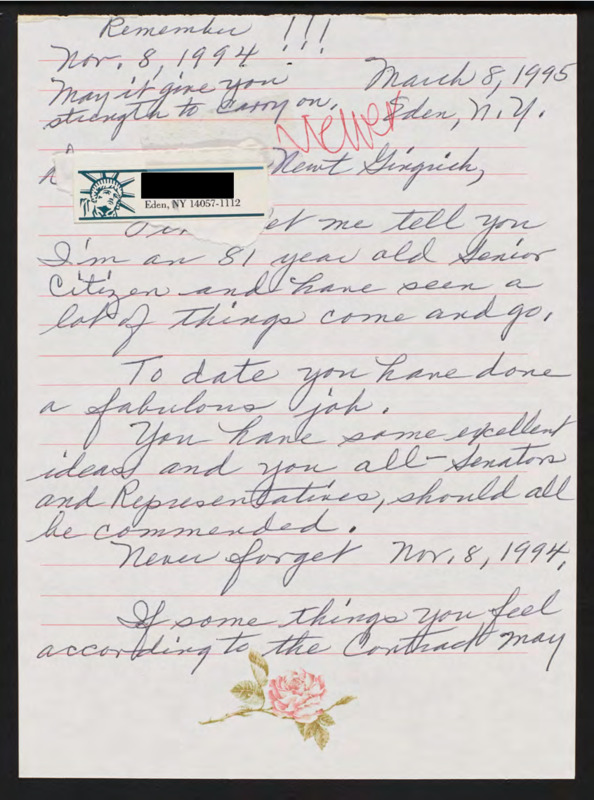 Remember !!!
Nov. 8, 1994
May it give you
strength to carry on.
March 8, 1995
Eden, N.Y.
Newt Gingrich,
Eden, NY 14057-1112
let me tell you
I'm an 81 year old Senior
Citizen and have seen a
lot of things come and go.
To date you have done
a fabulous job.
You have some excellent
ideas and you all - Senators
and Representatives, should all
be commended.
Never forget Nov. 8, 1994.
If some things you feel
according to the Contract may